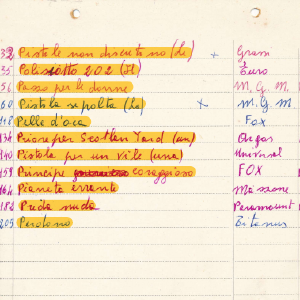 32 Pistole non discutono (Le) x Grass
35 Poliziotto 202 (Il) Euro
56 Passo per le donne M.G.M.
60 Pistola sepolta (La) x M.G.M.
118 Pelle d'oca Fox
134 Priore per Scotlen Yard (un)
140 Pistola per un vile (una) Universal
159 Principe coraggioso FOX
164 Pianeta errante
182 Preda nuda Paramount
205 Perdono Titanus